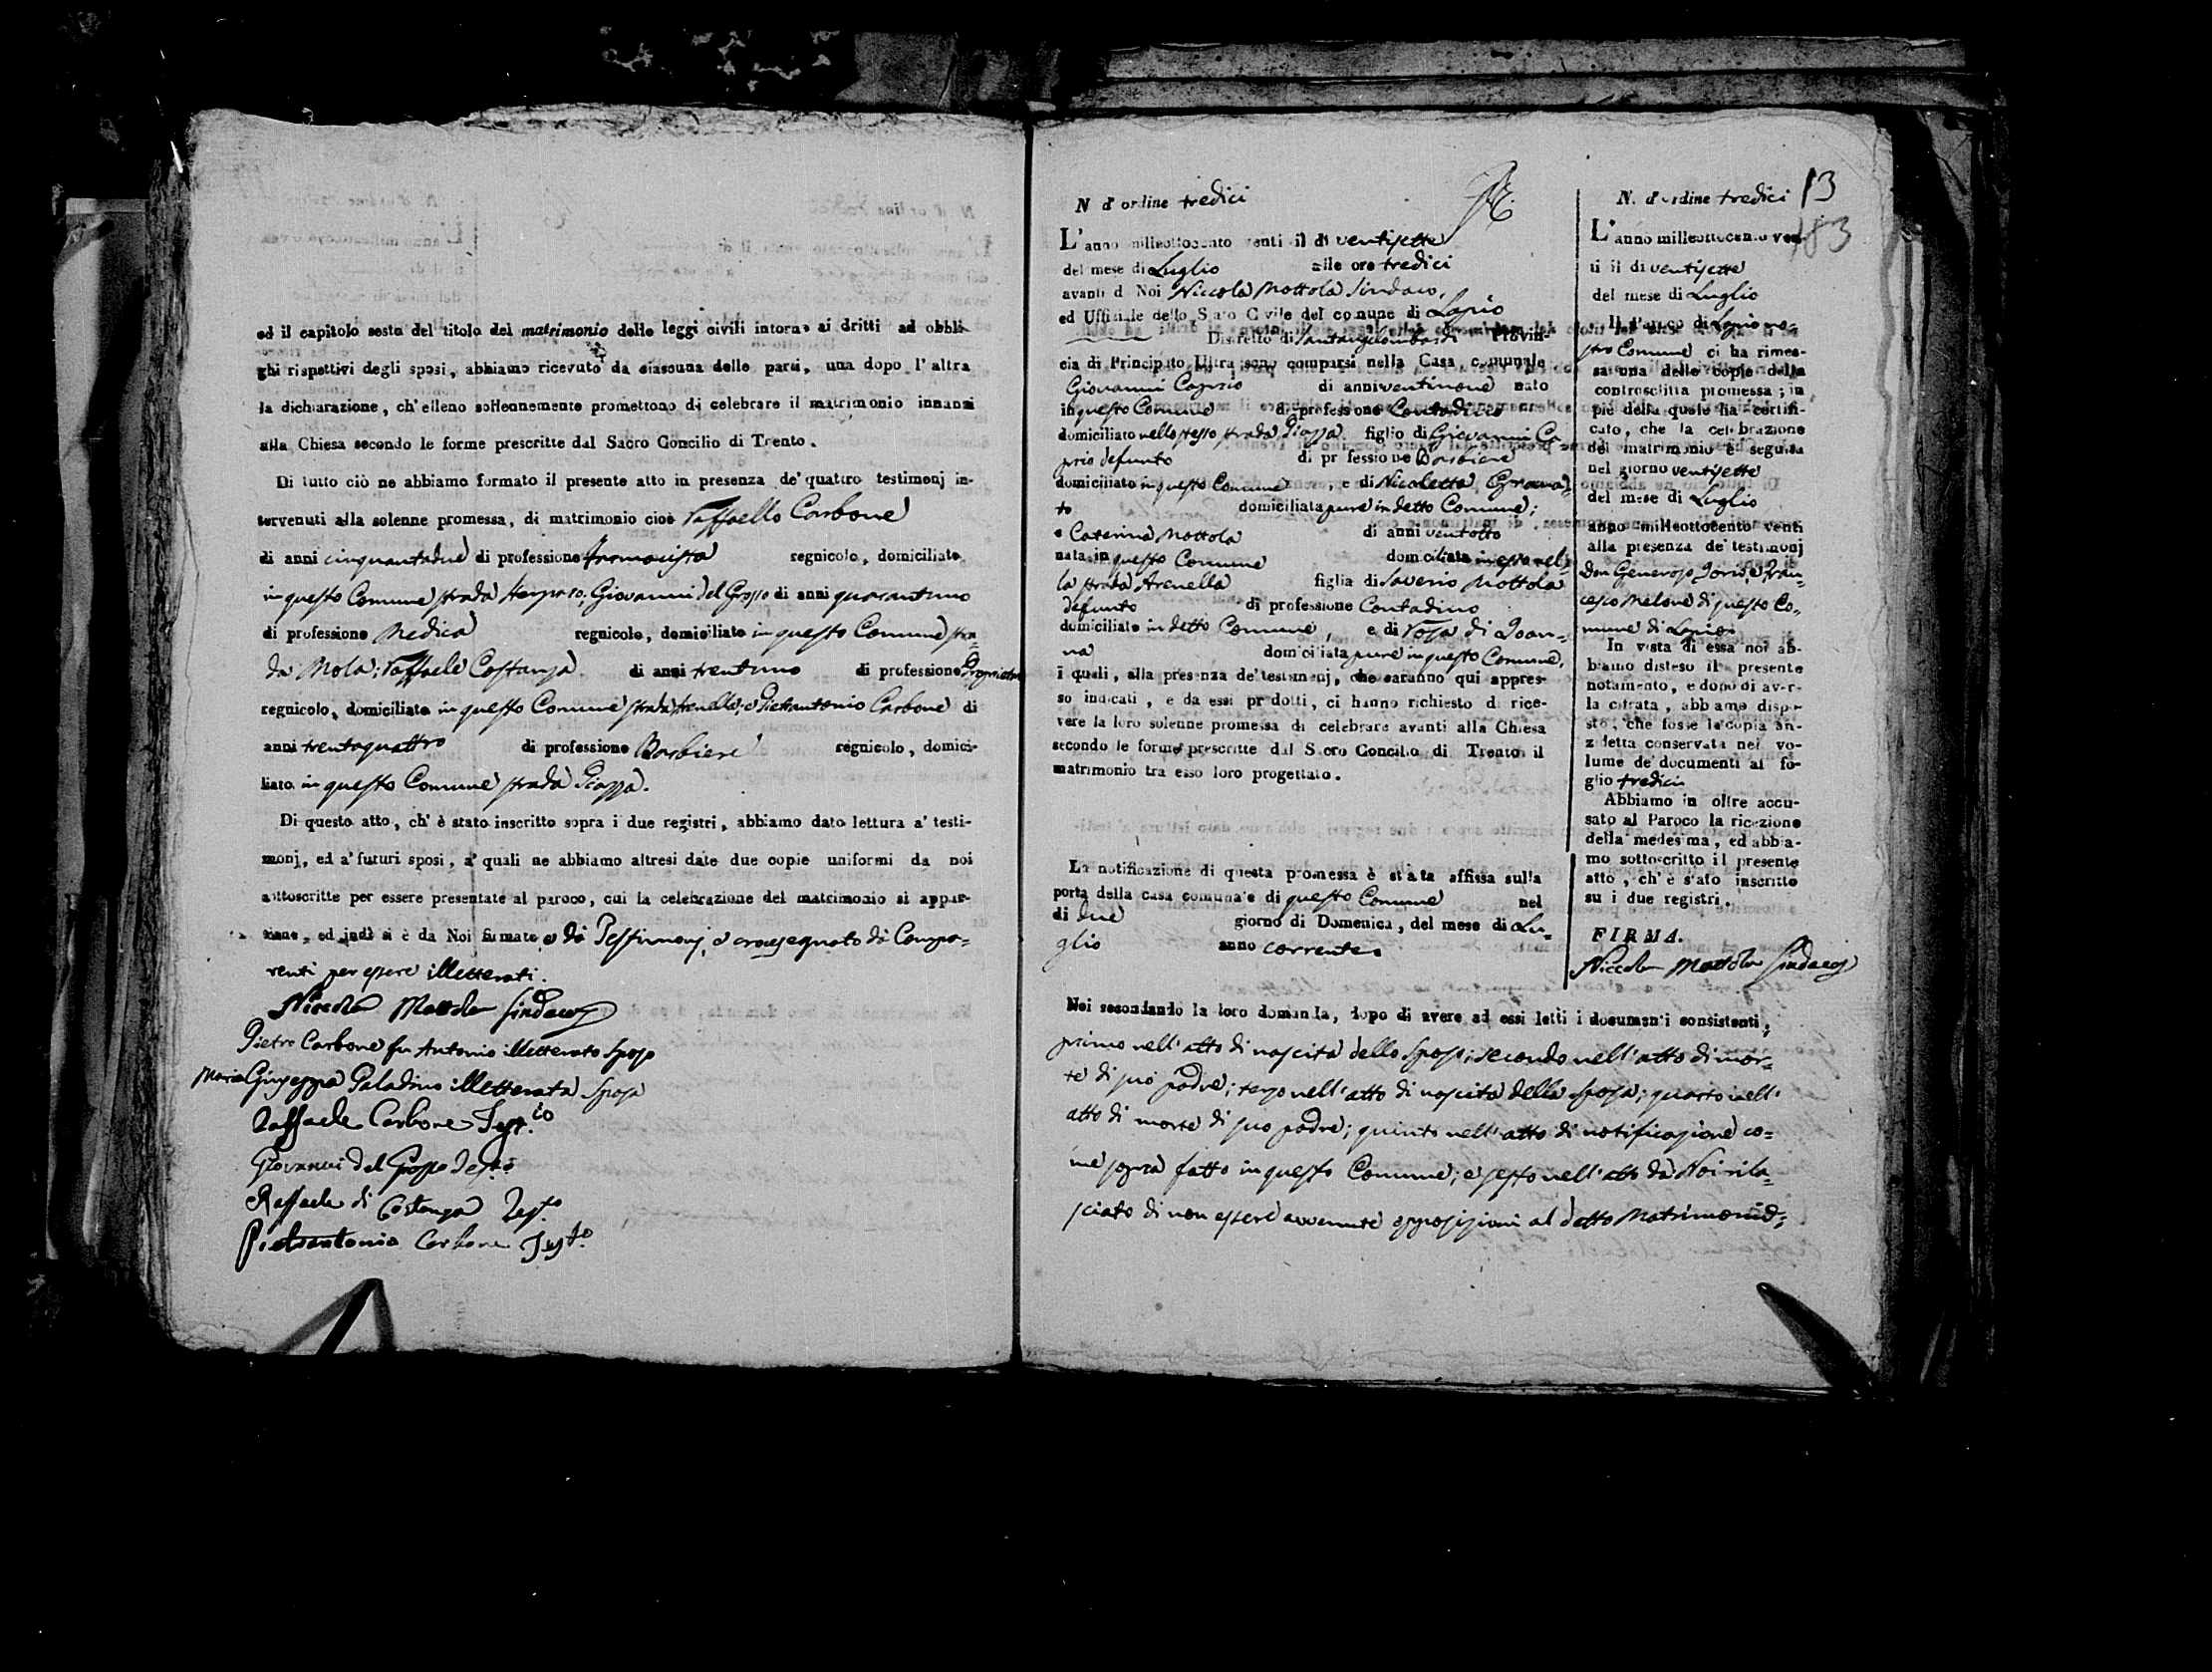 ed il capitolo sesto del titolo del matrimonio delle leggi civili intorno ai dritti ad obbli-
ghi rispettivi degli sposi, abbiamo ricevuto da ciascuna delle parti, una dopo l'altra
la dichiarazione, ch'elleno sollennemente promettono di celebrare il matrimonio innanzi
alla Chiesa secondo le forme prescritte dal Sacro Concilio di Trento.
Di tutto ciò ne abbiamo formato il presente atto in presenza de' quattro testimonj in-
tervenuti alla solenne promessa, di matrimonio cioè Raffaello Carbone
di anni cinquantadue di professione regnicolo, domiciliato
in questo Comune strada Giovanni del Grosso di anni quarantuno
di professione Medico regnicolo, domiciliato in questo Comune stra-
da Mola; Raffaele Costanza di anni trentuno di professione Proprietario
regnicolo, domiciliato in questo Comune strada Arenella; e Pietrantonio Carbone di
anni trentaquattro di professione Barbiere regnicolo, domici-
liato in questo Comune strada Piazza.
Di questo atto, ch'è stato inscritto sopra i due registri, abbiamo dato lettura a' testi-
monj, ed a' futuri sposi, a' quali ne abbiamo altresì date due copie uniformi da noi
sottoscritte per essere presentate al paroco, cui la celebrazione del matrimonio si appar-
tiene, ed indi si è da Noi firmato e da Testimonj, e crocesegnato da Compa=
renti per essere illetterati.
Niccola Mottola Sindaco
Pietro Carbone fu Antonio illetterato Sposo
Maria Giuseppa Paladino illetterata Sposa
Raffaele Carbone Test.io
Giovanni del Grosso Test.o
Raffaele di Costanza Test.o
Pietrantonio Carbone Test.o
N d'ordine tredici
L'anno milleottocento venti il di ventisette
del mese di Luglio alle ore tredici
avanti d Noi Niccola Mottola Sindaco,
ed Uffiziale dello Stato Civile del comune di Lapio
Distretto di Santangelombardi Provin-
cia di Principato Ultra sono comparsi nella Casa comunale
Giovanni Caprio di anni ventinove nato
in questo Comune di professione Contadino
domiciliato nello stesso strada Piazza figlio di Giovanni Ca=
prio defunto di professione Barbiere
domiciliato in questo Comune, e di Nicoletta
domiciliata pure in detto Comune;
e Caterina Mottola di anni ventotto
nata in questo Comune domiciliata in esso nel=
la strada Arenella figlia di Saverio Mottola
defunto di professione Contadino
domiciliato in detto Comune, e di Rosa di Ioan=
na domiciliata pure in questo Comune,
i quali, alla presenza de' testimonj, che saranno qui appres-
so indicati, e da essi prodotti, ci hanno richiesto di rice-
vere la loro solenne promessa di celebrare avanti alla Chiesa
secondo le forme prescritte dal Sacro Concilio di Trento il
matrimonio tra esso loro progettato.
La notificazione di questa promessa è stata affissa sulla
porta della casa comunale di questo Comune nel
di due giorno di Domenica, del mese di Lu=
glio anno corrente.
Noi secondando la loro domanda, dopo di avere ad essi letti i documenti consistenti,
primo nell'atto di nascita dello Sposo; secondo nell'atto di mor=
te di suo padre; terzo nell'atto di nascita della sposa; quarto nell'
atto di morte di suo padre; quinto nell'atto di notificazione co=
me sopra fatto in questo Comune; e sesto nell'atto da Noi rila=
sciato di non essere avvenute opposizioni al detto Matrimonio=
13
183
N. d'ordine tredici
L'anno milleottocento ven-
ti il di ventisette
del mese di Luglio
Il Paroco di Lapio no=
stro Comune ci ha rimes-
sa una delle copie della
controscritta promessa; in
piè della quale ha certifi-
cato, che la celebrazione
del matrimonio è seguita
nel giorno ventisette
del mese di Luglio
anno milleottocento venti
alla presenza de' testimonj
Don Generoso Iorio, e Fran=
cesco Melone di questo Co=
mune di Lapio
In vista di essa noi ab-
biamo disteso il presente
notamento, e dopo di aver-
la cifrata, abbiamo dispo-
sto, che fosse la copia an-
zidetta conservata nel vo-
lume de' documenti al fo-
glio tredici
Abbiamo in oltre accu-
sato al Paroco la ricezione
della medesima, ed abbia-
mo sottoscritto il presente
atto, ch'è stato inscritto
su i due registri.
FIRMA.
Niccola Mottola Sindaco